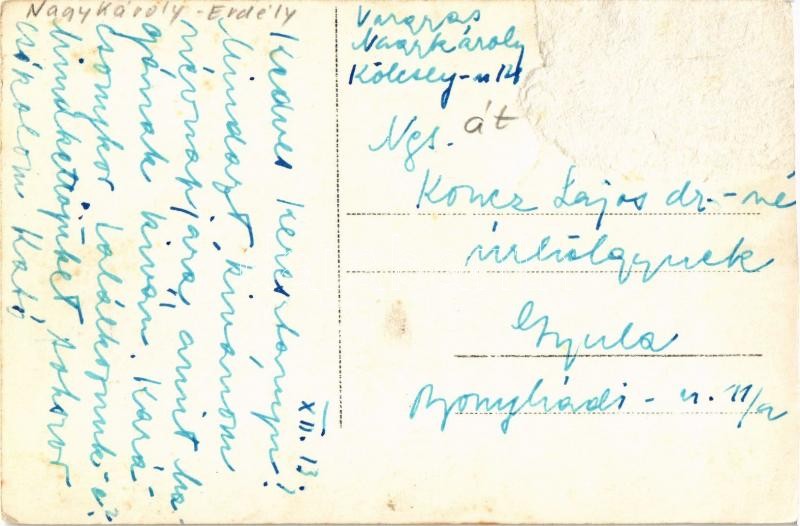 Nagykároly - Erdély
XII. 13.
Kedves Keresztanyu!
Mindazt kivánom
névnapjára, amit ma-
gának kiván. Kará-
csonykor találkozunk-e?
Mindkettőjüket sokszor
csókolom Kató
Nagykároly
Kölcsey-u 14
át
Ngs.
Koncz Lajos dr.-né
úrhölgynek
Gyula
Bonyhádi - u. 11/a